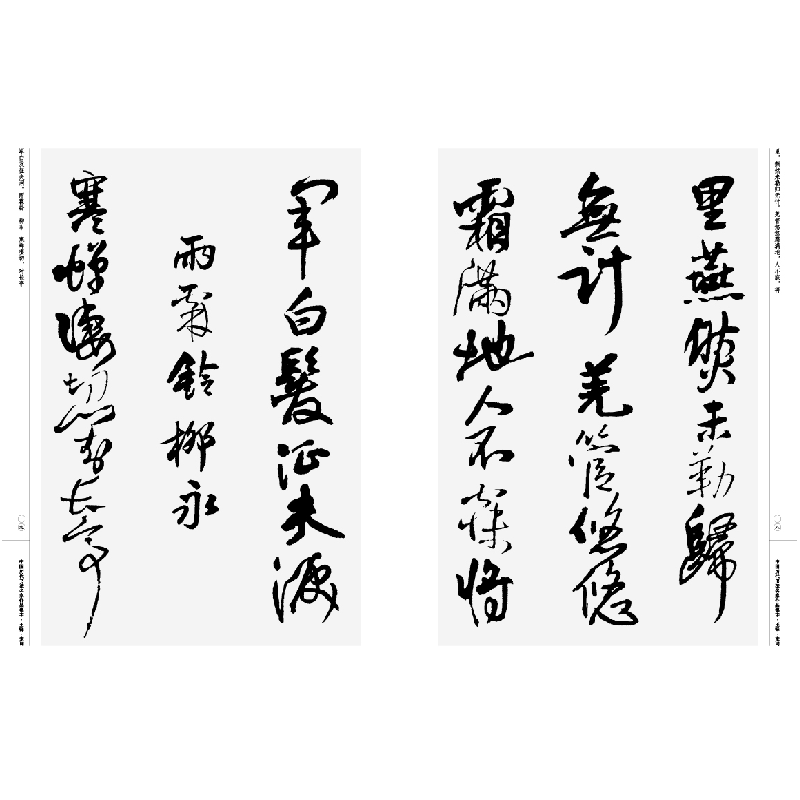 里燕然未勒歸
無計羌管悠悠
霜滿地人不寐將
軍白髮征夫淚
雨霖鈴柳永
寒蟬凄切對長亭